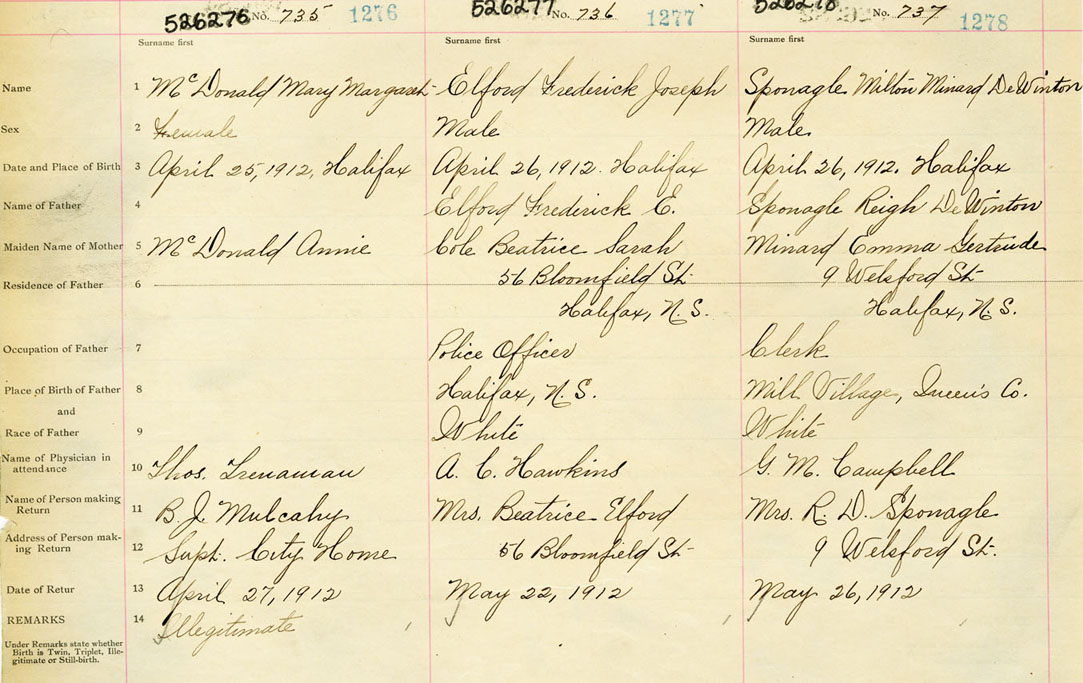 526276 No. 735 1276 526277 No. 736 1277 No. 737 1278
Surname first Surname first Surname first
Name 1 McDonald Mary Margaret Elford Frederick Joseph Sponagle Milton Minard DeWinton
Sex 2 Female Male Male
Date and Place of Birth 3 April 25, 1912, Halifax April 26, 1912. Halifax April 26, 1912. Halifax
Name of Father 4 Elford Frederick E. Sponagle Reigh DeWinton
Maiden Name of Mother 5 McDonald Annie Cole Beatrice Sarah Minard Emma Gertrude
Residence of Father 6 56 Bloomfield St. 9 Welsford St.
Halifax, N.S. Halifax, N.S.
Occupation of Father 7 Police Officer Clerk
Place of Birth of Father 8 Halifax, N.S. Mill Village, Queen's Co.
and
Race of Father 9 White White
Name of Physician in
attendance 10 Thos. Trenaman A. C. Hawkins G. M. Campbell
Name of Person making
Return 11 B. J. Mulcahy Mrs. Beatrice Elford Mrs. R. D. Sponagle
Address of Person mak-
ing Return 12 Supt. City Home 56 Bloomfield St. 9 Welsford St.
Date of Retur 13 April 27, 1912 May 22, 1912 May 26, 1912
REMARKS 14 Illegitimate
Under Remarks state whether
Birth is Twin, Triplet, Ille-
gitimate or Still-birth.